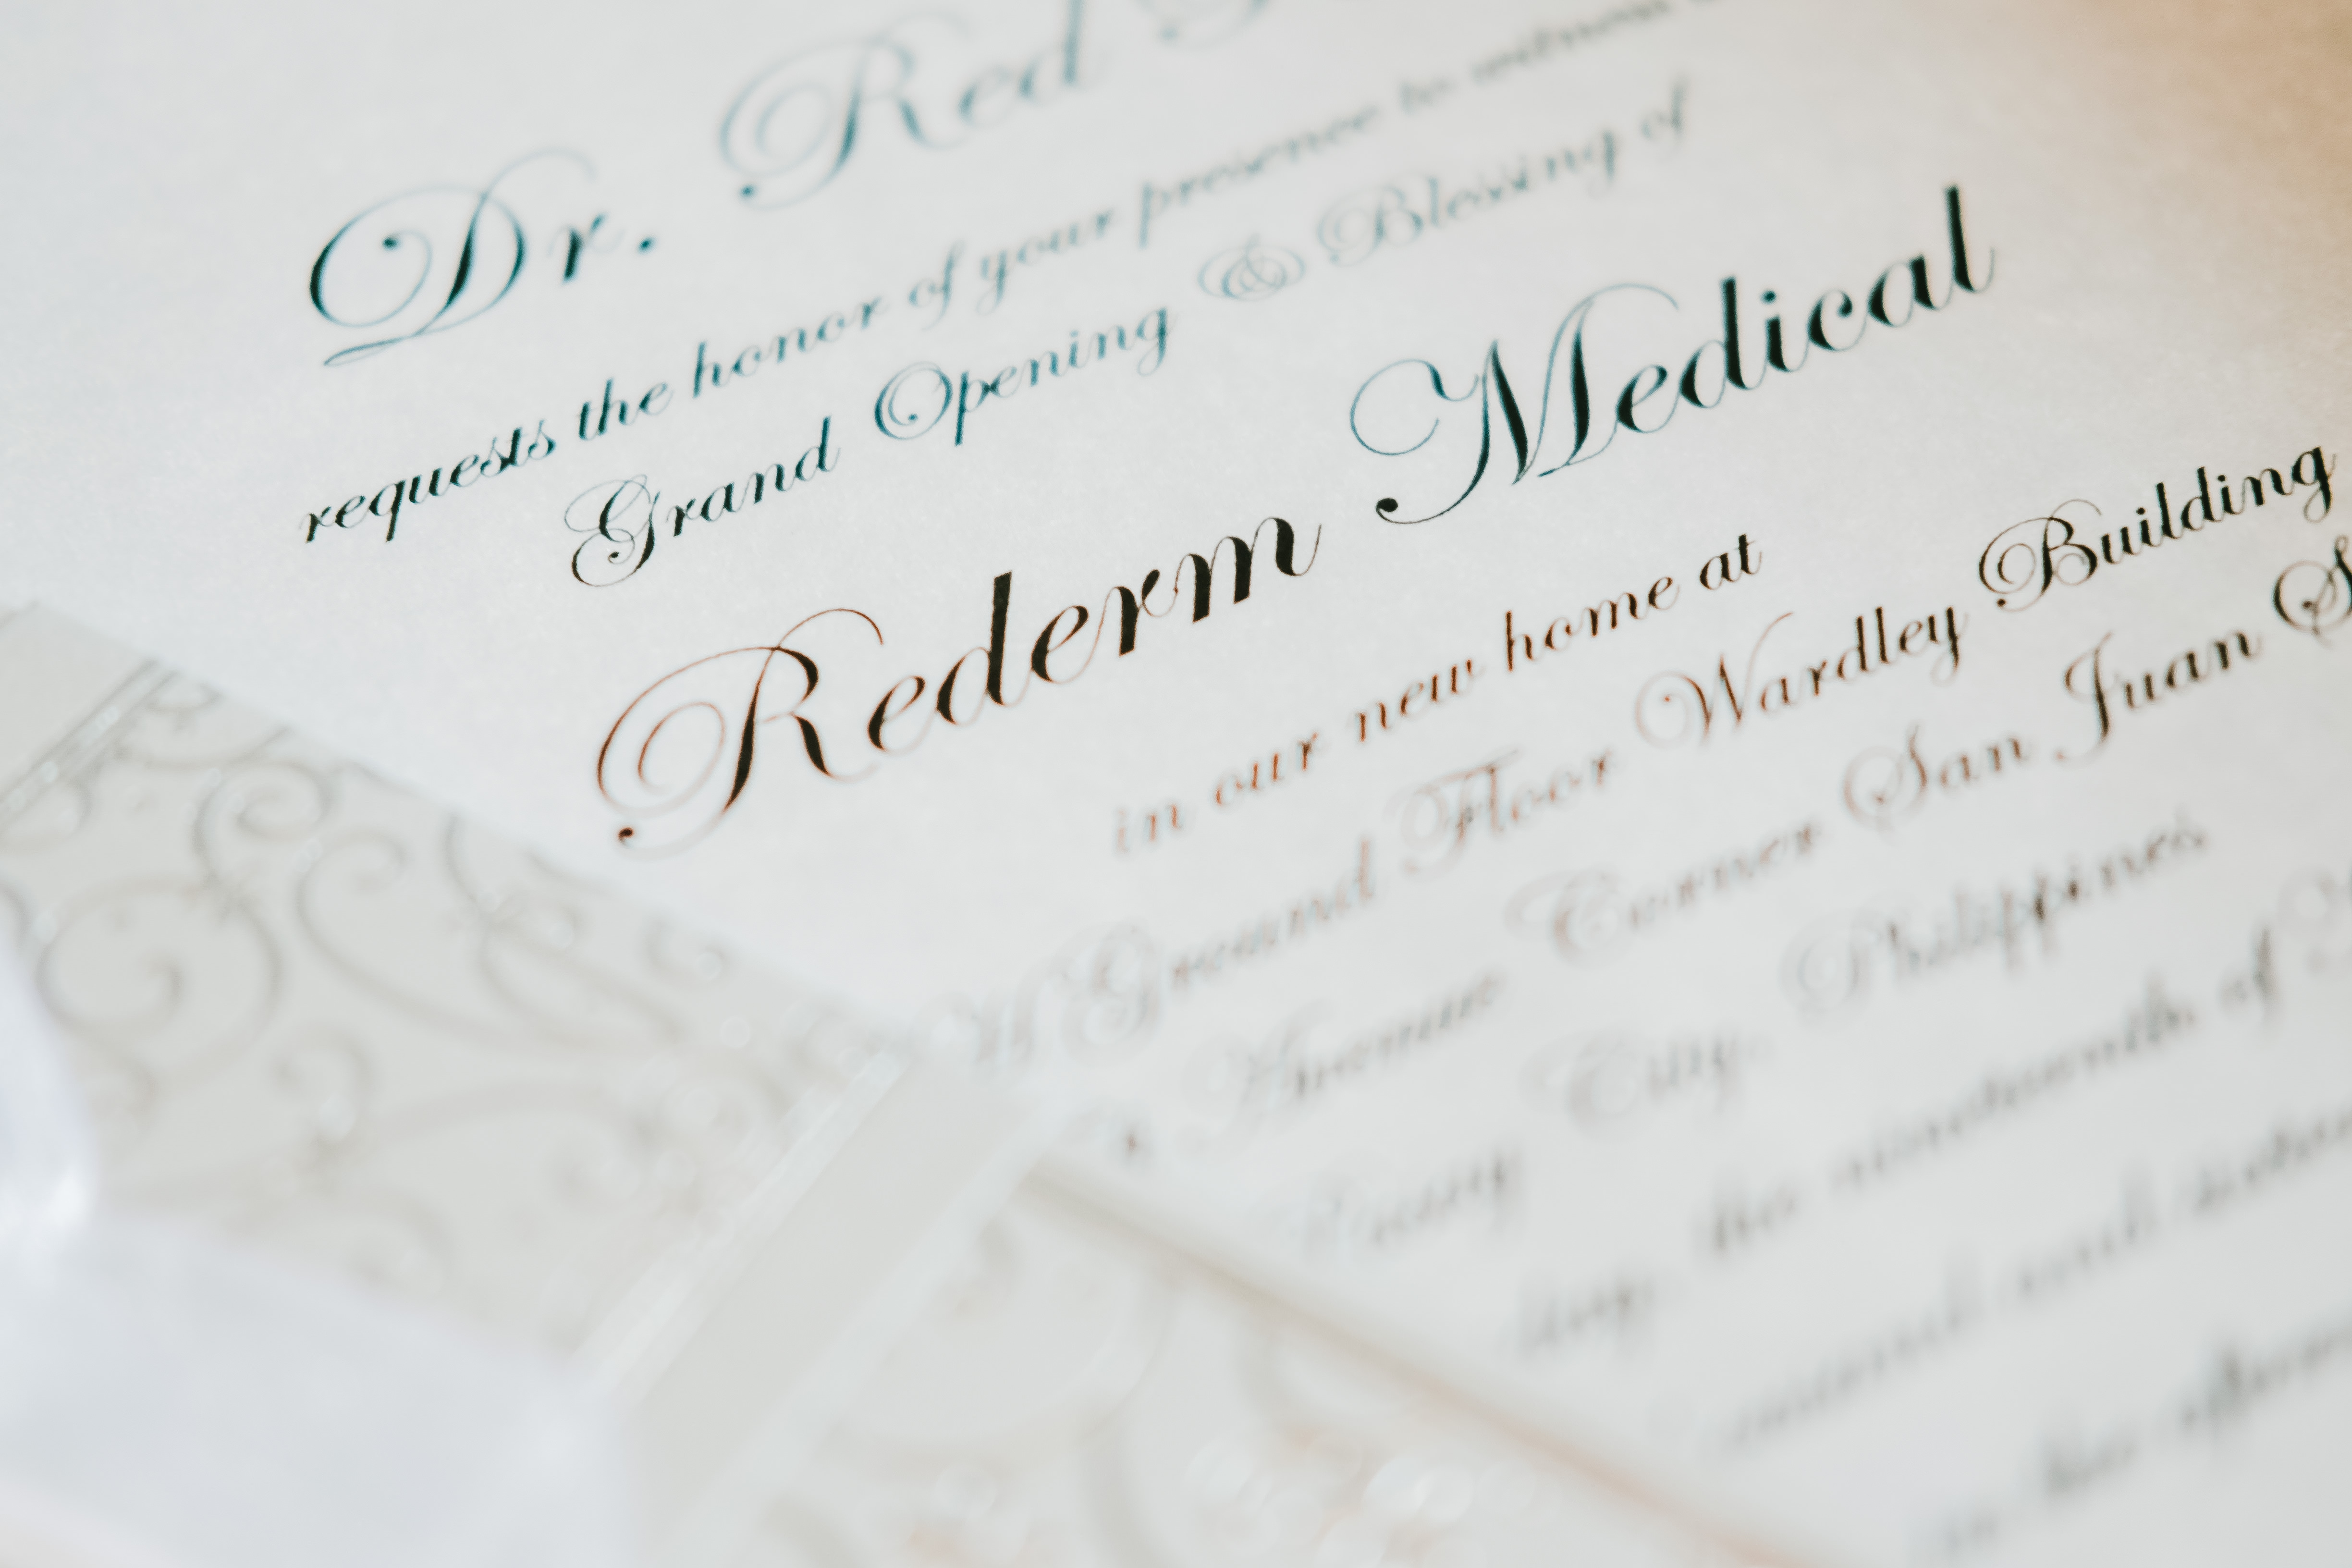 Dr. Red
requests the honor of your presence to witness
Grand Opening & Blessing of
Rederm Medical
in our new home at
Ground Floor Wardley Building
Avenue Corner San Juan S
City Philippines
the nineteenth of
thousand and
in the